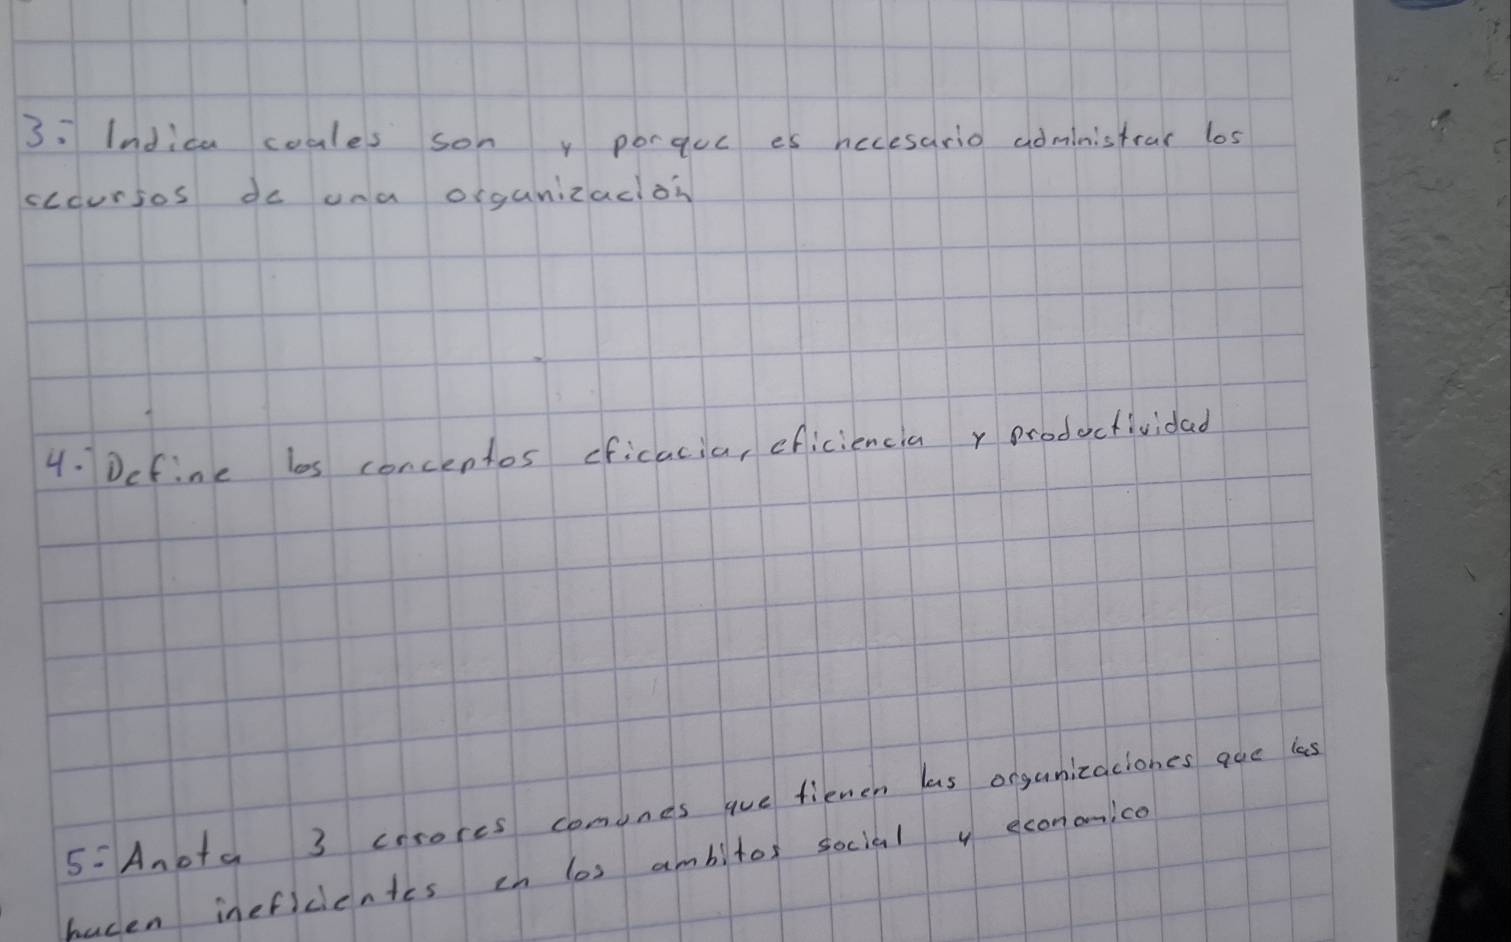 3:- Indica cuales son y porque es necesario administrar los
recursos de una organización
4.- Define los conceptos eficacia, eficiencia y productividad
5:- Anota 3 errores comunes que tienen las organizaciones que las
hacen ineficientes en los ambitos social y economico